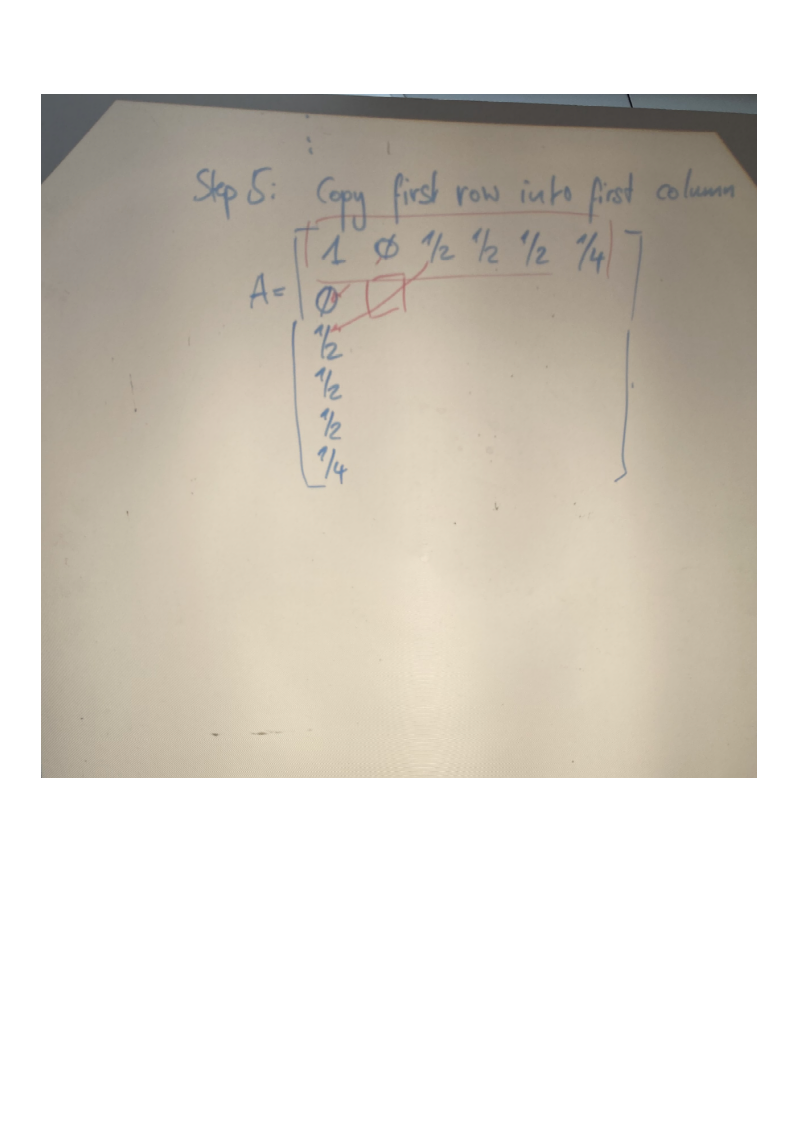 Step 5: Copy first row into first column
1 Ø 1/2 1/2 1/2 1/4
A=
Ø
1/2
1/2
1/2
1/4